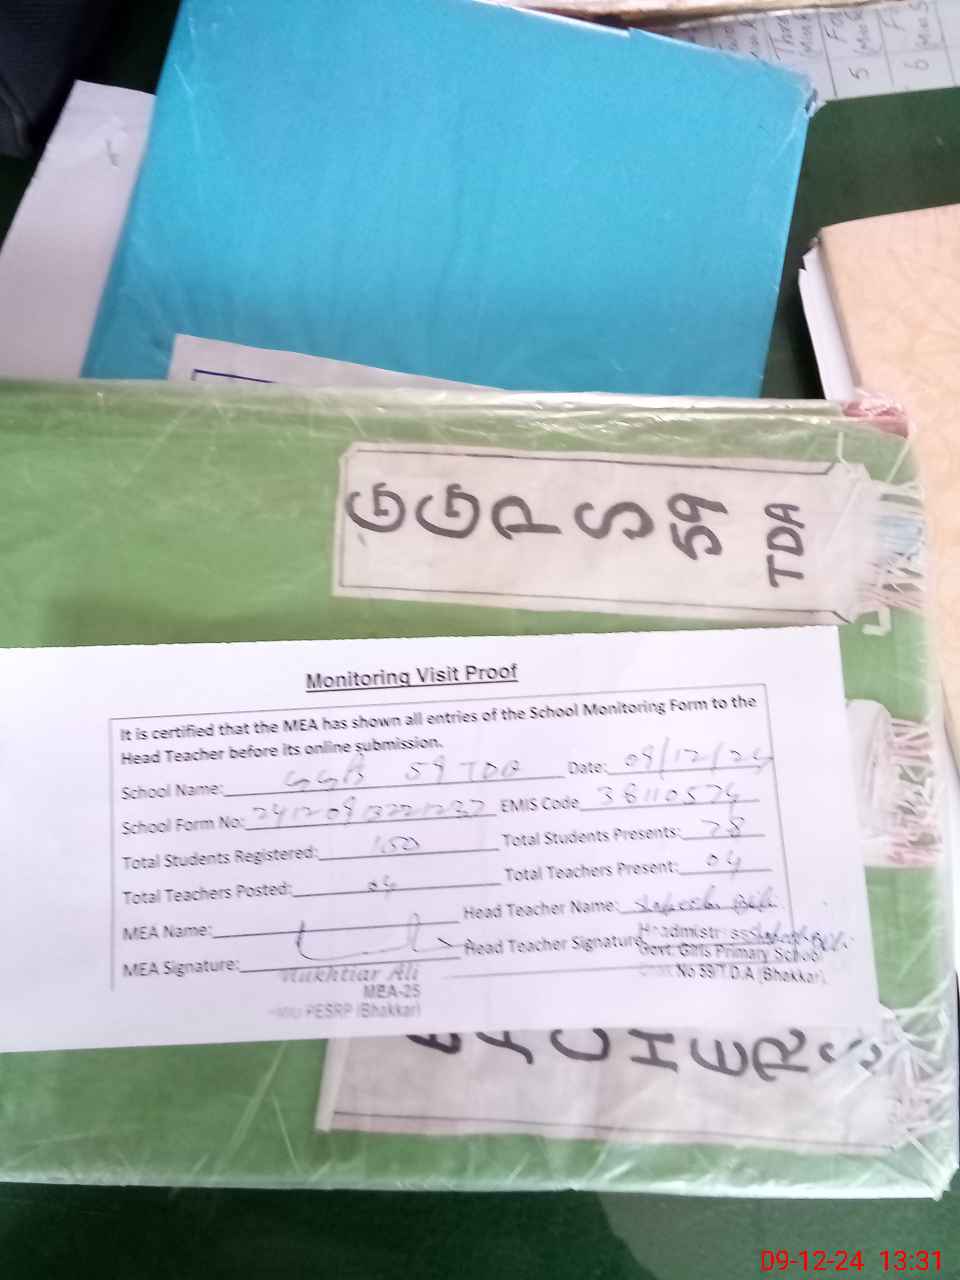 5
6
GGPS 59 TDA
Monitoring Visit Proof
It is certified that the MEA has shown all entries of the School Monitoring Form to the
Head Teacher before its online submission.
School Name: 59 TDA Date: 09/12/24
School Form No: EMIS Code 38110574
Total Students Registered: 150 Total Students Presents: 78
Total Teachers Posted: 04 Total Teachers Present: 04
MEA Name: Head Teacher Name: Bibi
MEA Signature: Head Teacher Signature
Mukhtiar Ali
MEA-25
PESRP (Bhakkar)
Headmistress
Govt. Girls Primary School
No 59/T.D.A (Bhakkar)
CHERS
09-12-24 13:31